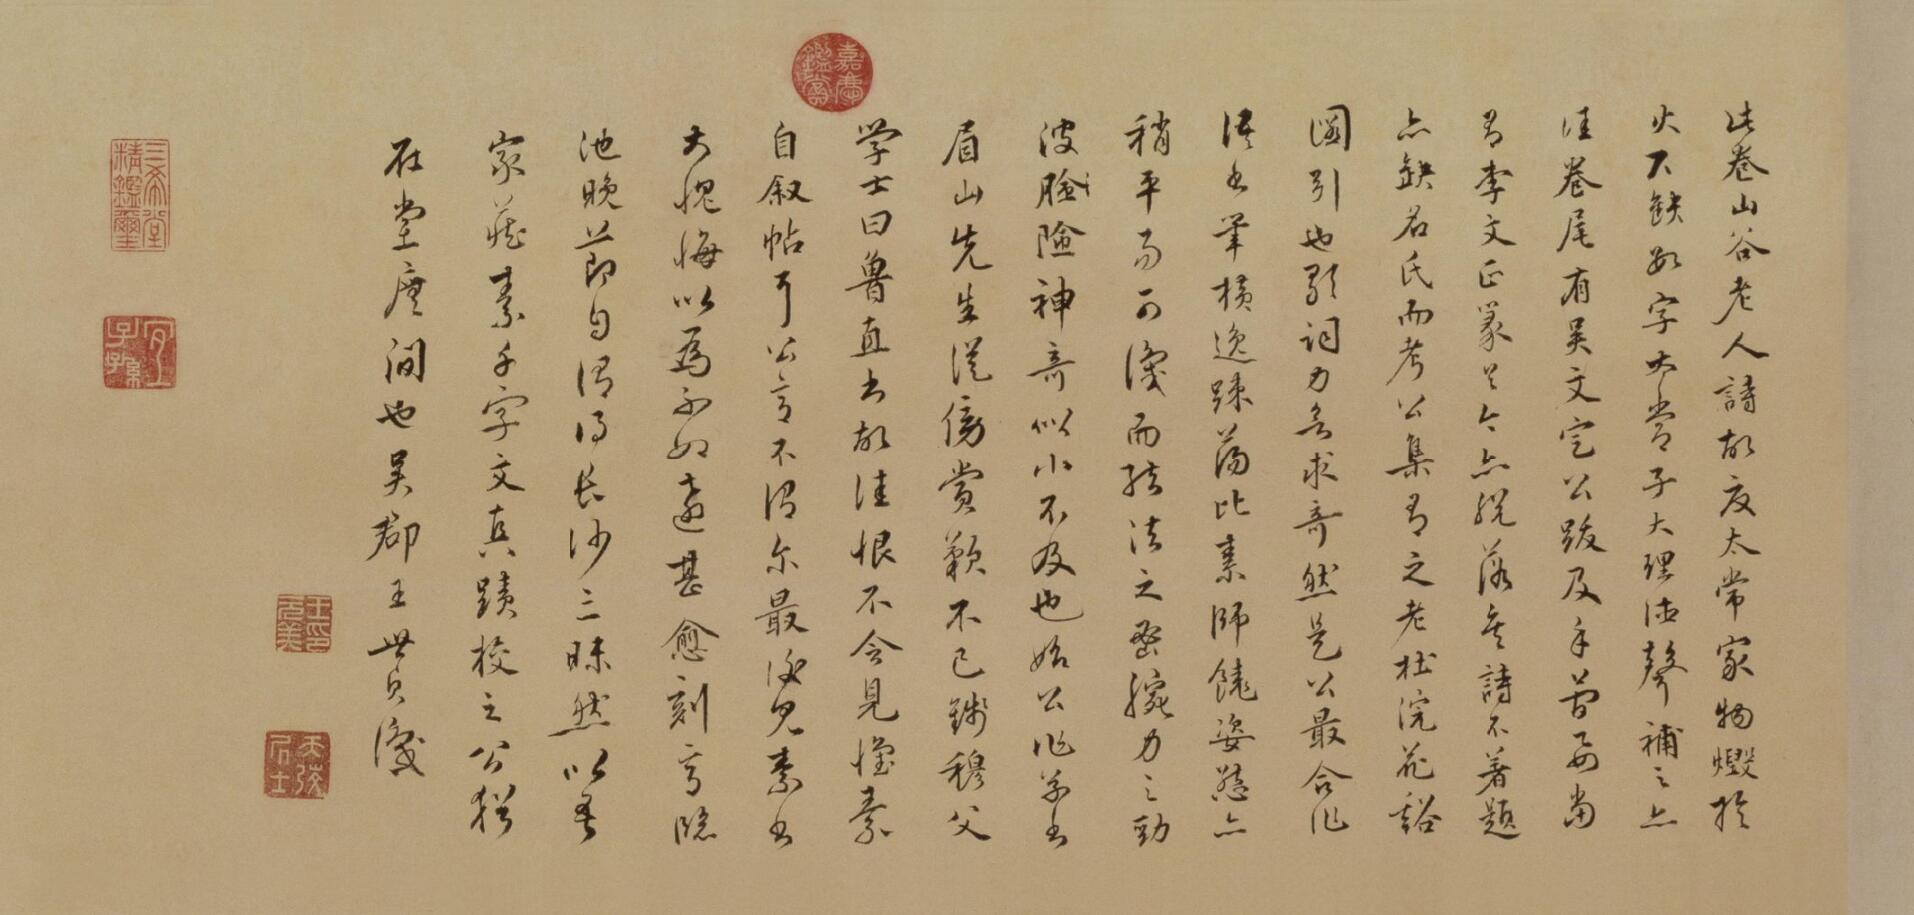 此卷山谷老人詩故友太常家物燬於
火不缺數字太常子大理德聲補之亡
佳卷尾有吳文定公跋及手曾
有李文正篆今亦脫落矣詩不著題
亦缺名氏而考公集有之老杜浣花谿
圖引也歌詞力去求奇然是公最合作
語書筆橫逸踈蕩比素師饒姿態亦
稍平易可識而結法之密腕力之勁
波險神奇似小不及也始公作草書
眉山先生從傍賞歎不已錢穆父
學士曰魯直書故佳恨不令見懷素
自叙帖耳公言不謂尔最後見素書
大愧悔以為不如遠甚愈刻意臨
池晚節自謂得長沙三昧然以吾
家藏素千字文真蹟校之公猶
在堂廡間也吳郡王世貞識
嘉慶鑑賞
三希堂精鑑璽
宜子孫
王元美印
天弢居士